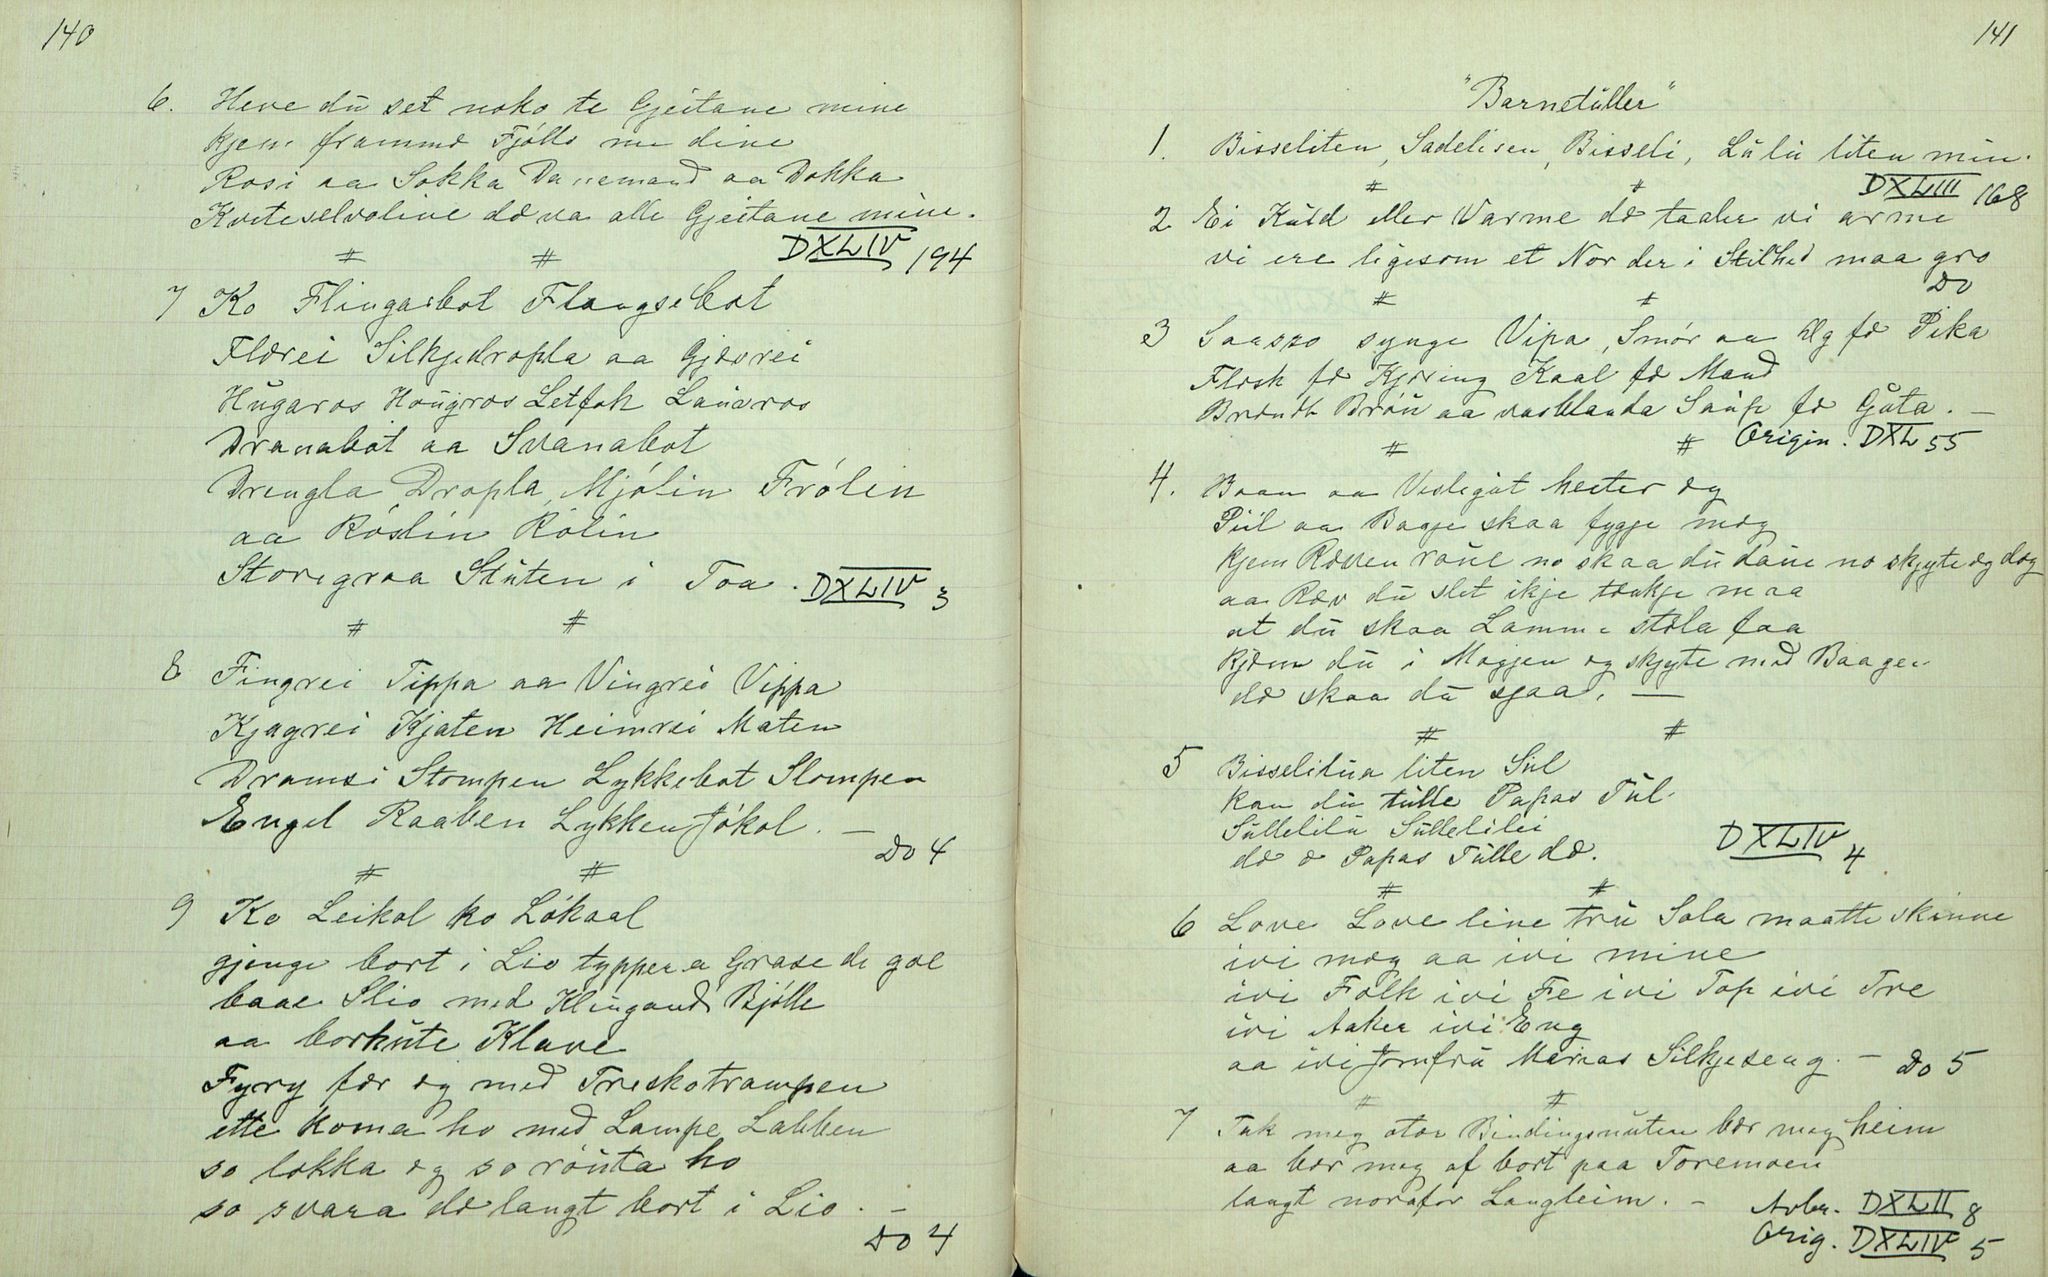 140
6. Heve du set noko te Gjeitane mine
kjem frammd Fjólls me dine
Rosi aa Sokka Danemand aa Dokka
Kviteselvoline dæ va alle Gjeitane mine.
DXLIV 194
# #
7 Ko Flingasbot Flaugsebot
Flærei Silkjedropla aa Gjævrei
Hŭgaros Hoŭgros Letfok Laŭvros
Dranabot aa Svanabot
Drengla Dropla, Mjólin Frólin
aa Róslin Rólin
Storegraa Stŭten i Toa. DXLIV 3
# #
8 Fingrei Tippa aa Vingrei Vippa
Kjagrei Kjaten Heimrei Maten
Dramsi Stompen Lykkebot Slompen
Engel Raaben Lykken Jókol. —
Do 4
# #
9 Ko Leikol ko Lókaal
gjenge bort i Lio typper a Grase de gol
baae Slio med Klingand Bjólle
aa borkŭte Klave
Fyry fær eg med Treskotrampen
ette koma ho med Lampe Labben
so lokka eg so róŭta ho
so svara dæ langt bort i Lio. —
Do 4
141
"Barnetŭller"
1. Bisseliten, Sadelisen, Bisseli, Lŭlŭ liten min.
# # DXLIII 168
2 Ei Kŭld eller Varme dæ taaler vi arme
vi ere ligesom et Nor der i Stilhed maa gro
Do
# #
3 Saasso synge Vipa, Smór aa Æg fæ Pika
Flesk fæ Kjæring Kaal fæ Mand
Brændt Bróŭ aa vasblanda Saŭp fæ Gŭta. —
# # Origin. DXL 55
4. Baan aa Veslegŭt heeter eg
Piil aa Bogje skaa fyggje meg
kjem Ræven raŭe no skaa dŭ daŭe no skjyte eg deg
aa Ræv dŭ slet ikje tænkje maa
at dŭ skaa Lamme stæla faa
kjæm dŭ i Mogjen eg skjyte med Baagen
dæ skaa dŭ sjaa. —
# #
5 Bisselilŭa liten Sŭl
kan dŭ tŭlle Papas Tŭl
Sŭllelilŭ Sŭllelilei
dæ æ Papas Tŭlle dæ. DXLIV 4
# #
6 Love Love line trŭ Sola maatte skinne
ivi meg aa ivi mine
ivi Folk ivi Fe ivi Top ivi Tre
ivi Aaker ivi Eng
aa ivi Jomfrŭ Marias Silkjeseng. — Do 5
# #
7 Tak meg otor Bindingsnŭten bær meg heim
aa bær meg af bort paa Toremoen
langt norafor Langleim. — Avbr. DXLII 8
Orig. DXLIV 5